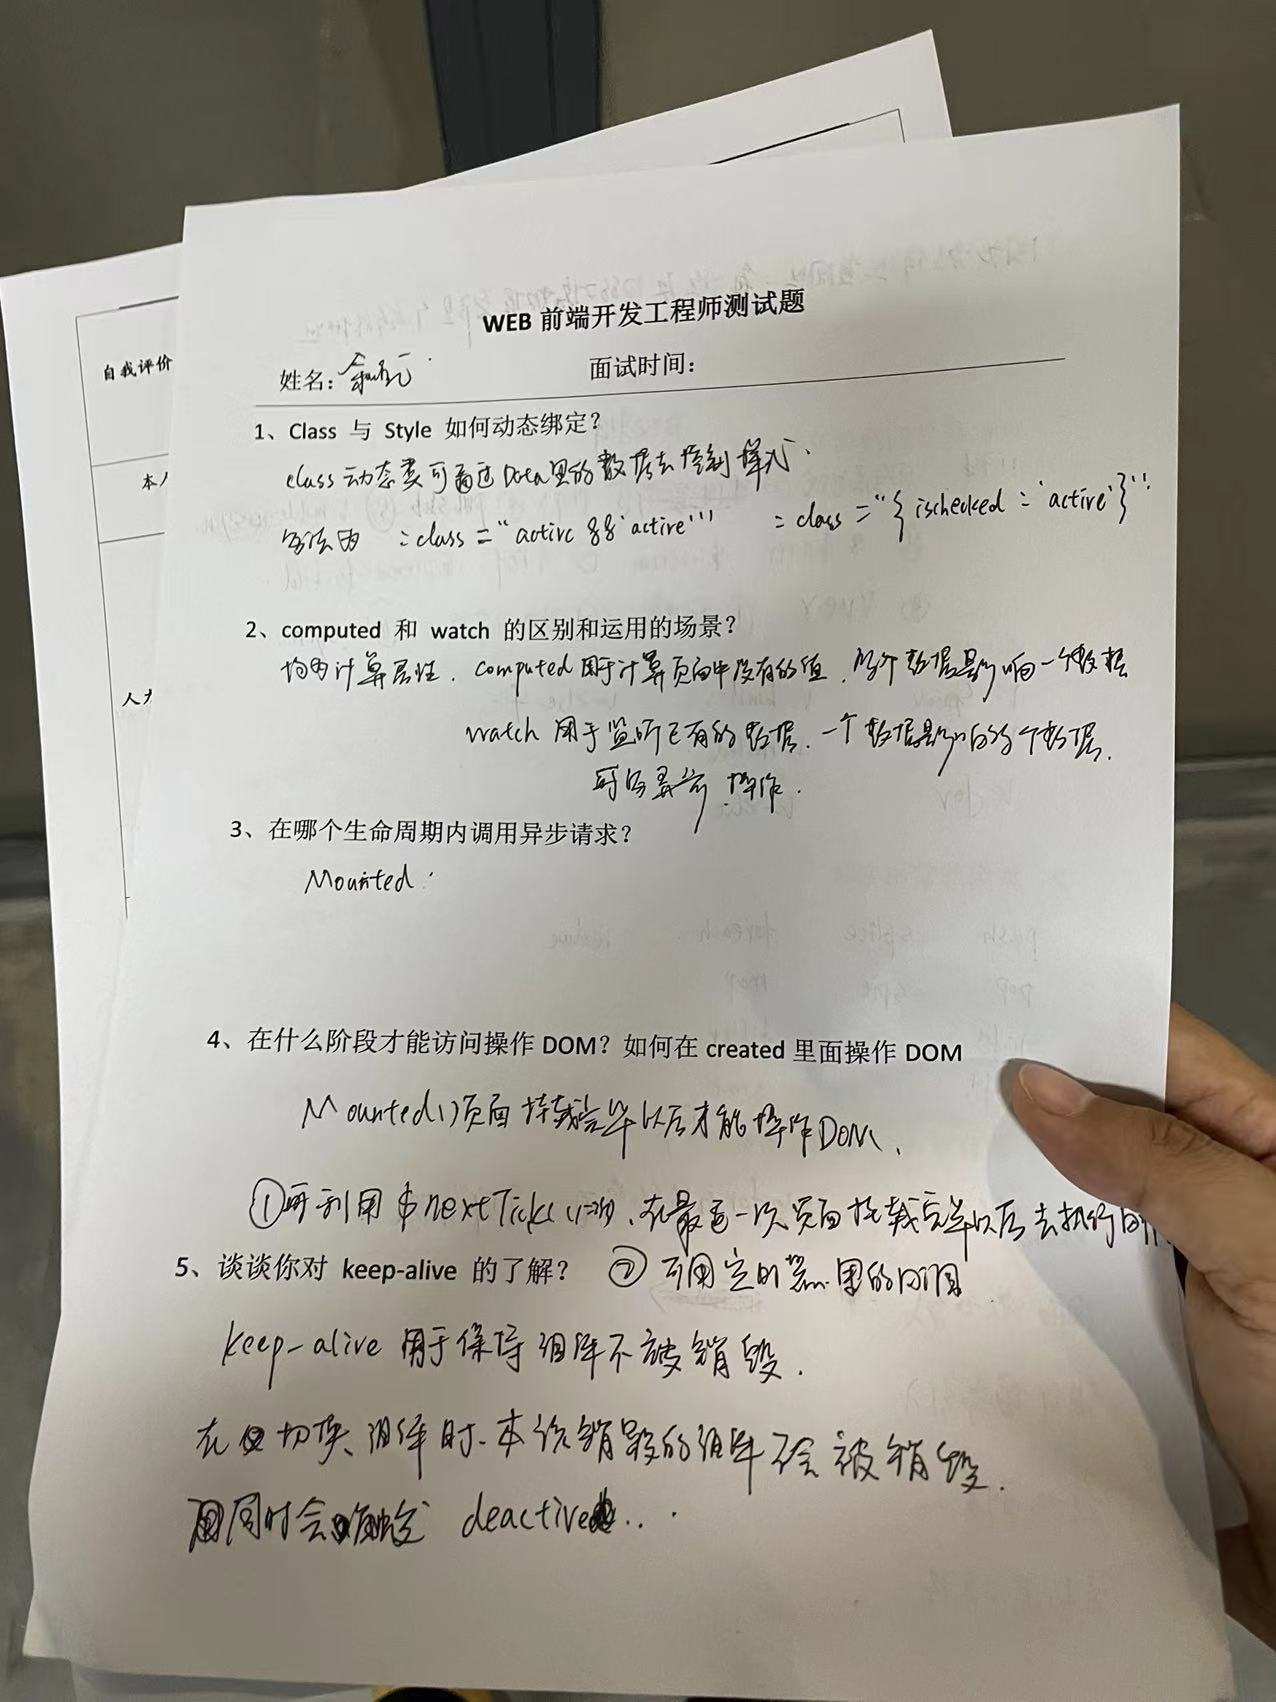 WEB 前端开发工程师测试题
自我评价
姓名:
面试时间:
1、Class 与 Style 如何动态绑定?
class 动态类可通过 Data里的数据去控制样式.
本人
方法为 :class="active && 'active'" :class="{ischecked:'active'}"
2、computed 和 watch 的区别和运用的场景?
均为计算属性. computed用于计算页面中没有的值. 多个数据影响一个数据
人力
watch 用于监听已有的数据. 一个数据影响多个数据.
可写异步 操作.
3、在哪个生命周期内调用异步请求?
Mounted.
4、在什么阶段才能访问操作 DOM? 如何在 created 里面操作 DOM
Mounted()页面挂载完毕以后才能操作DOM.
①可利用 $nextTick(()=>{}). 在最近一次页面挂载完毕以后去执行
5、谈谈你对 keep-alive 的了解? ②可用定时器里的回调
keep-alive 用于保持组件不被销毁.
在切换组件时.本该销毁的组件不会被销毁.
同时会触发 deactive...